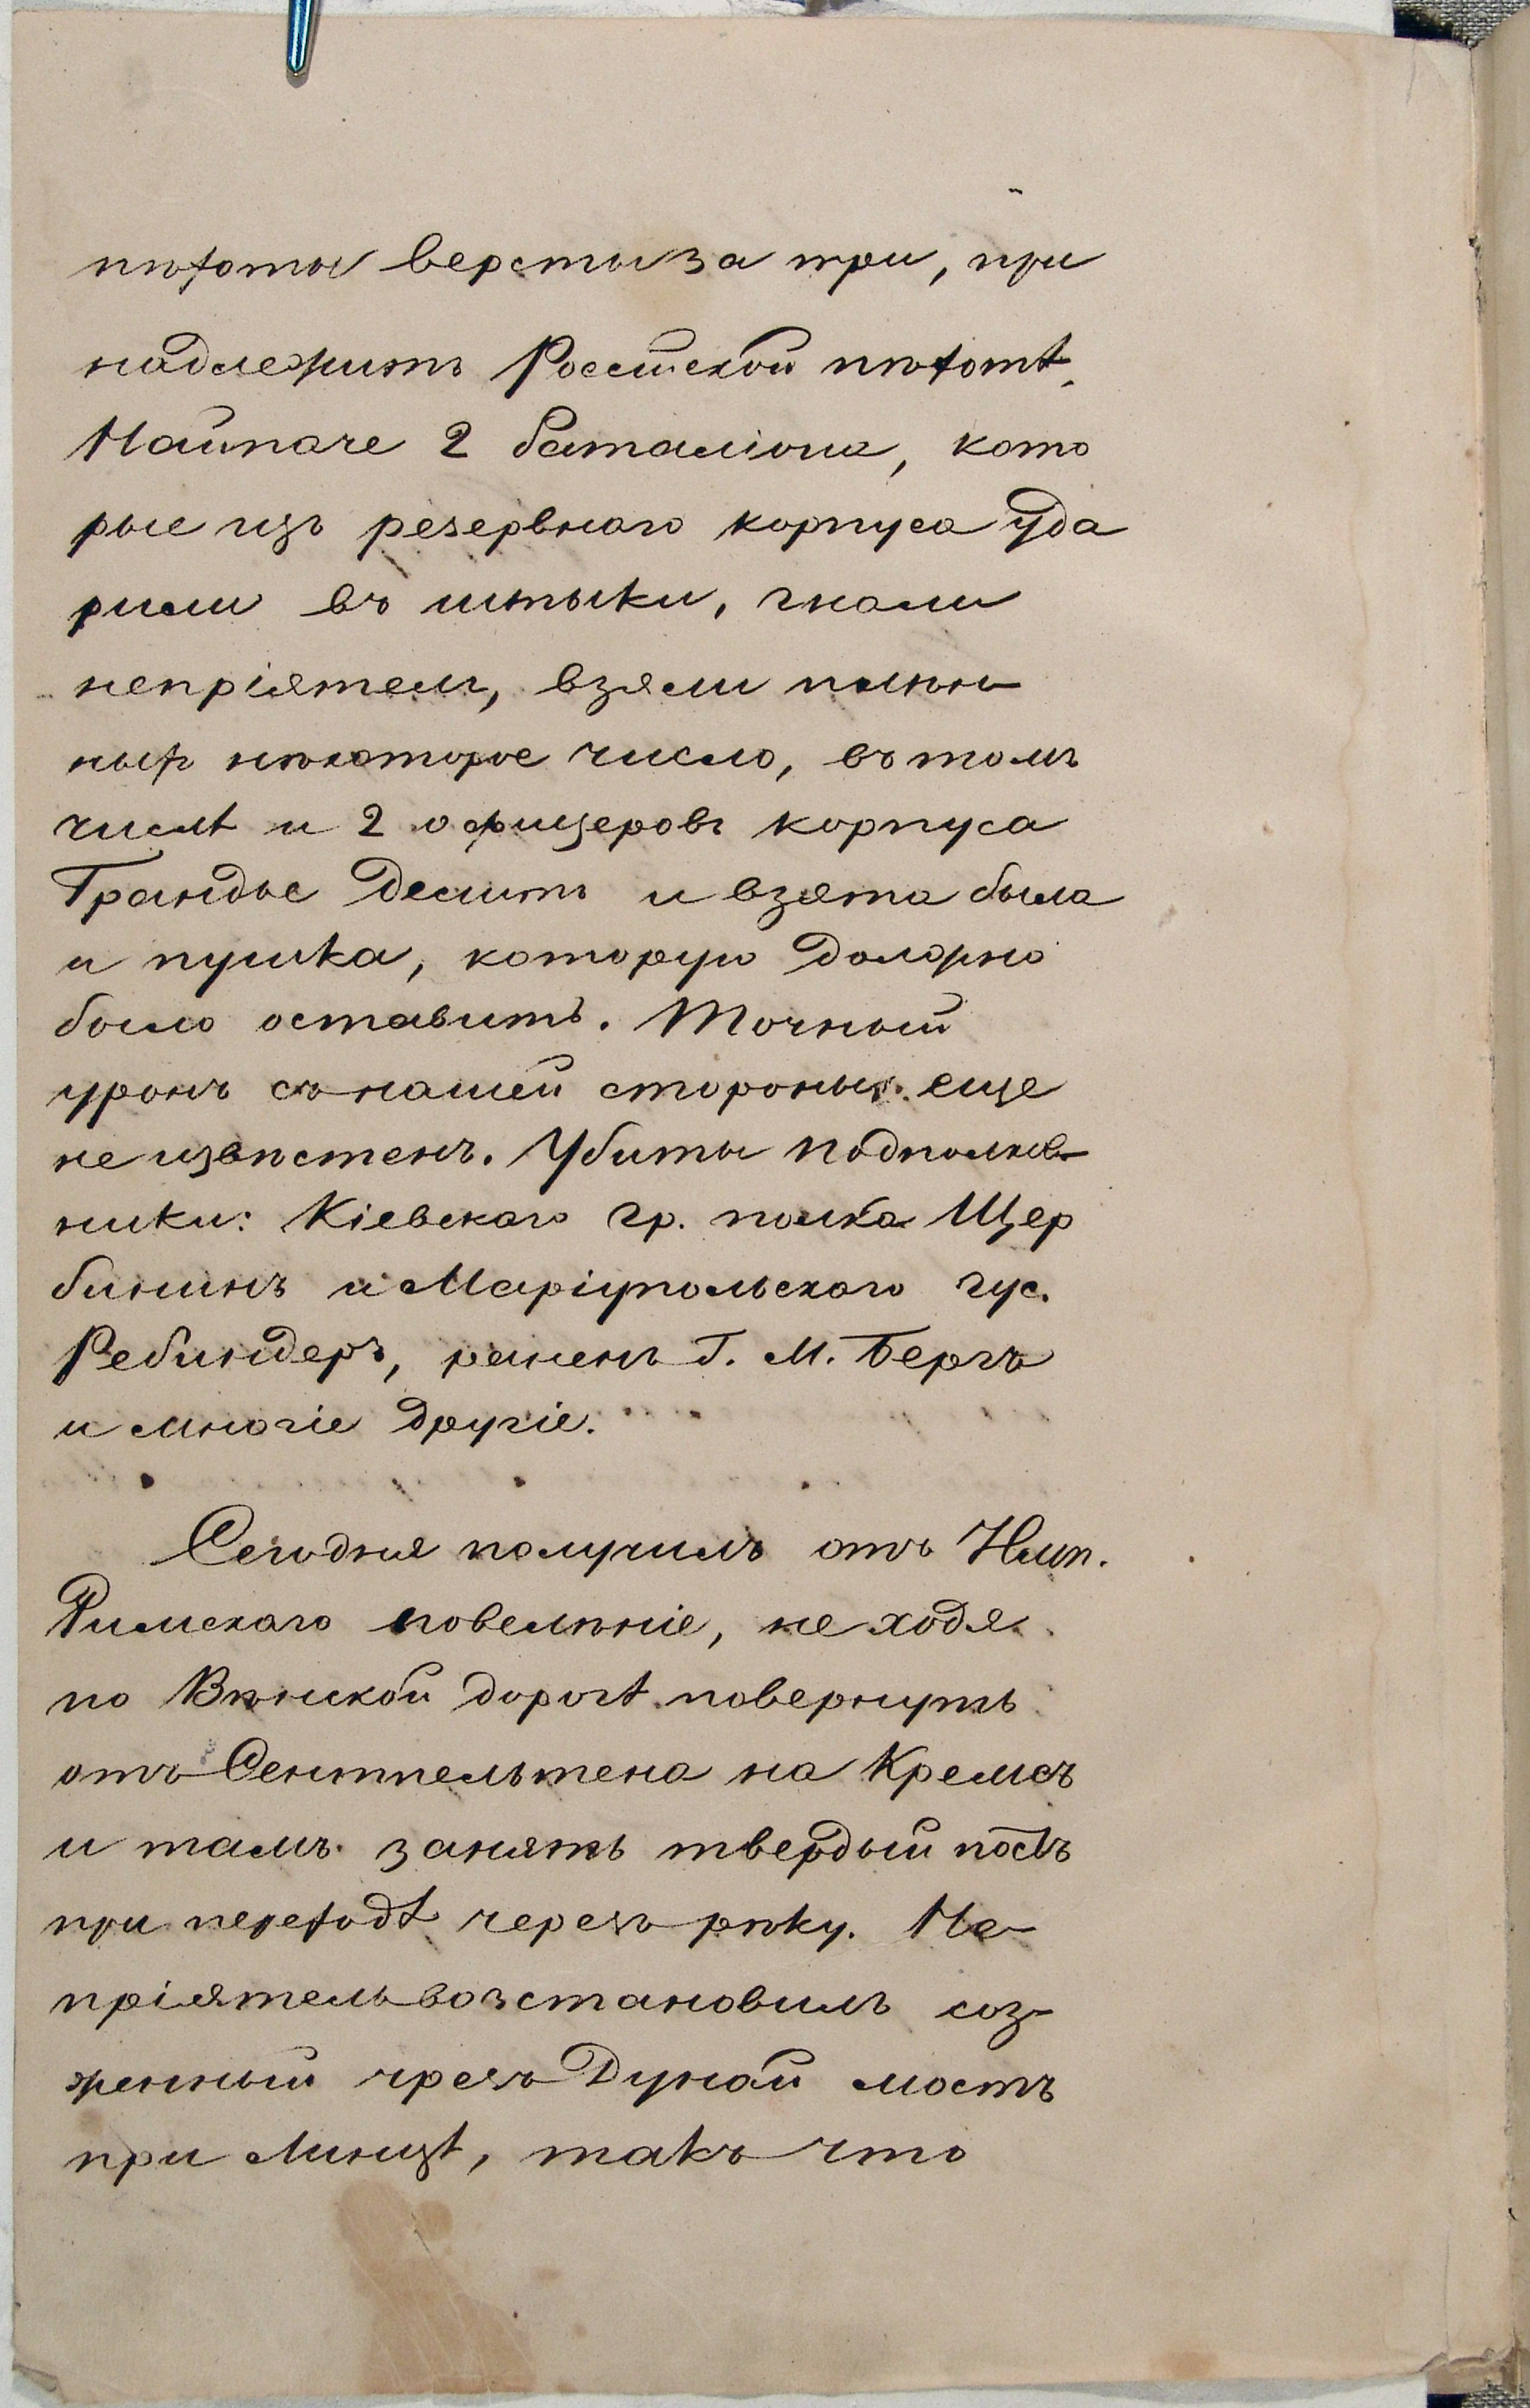 пѣхоты версты за три, при
надлежитъ Россійской пѣхотѣ.
Наипаче 2 баталіона, кото
рые изъ резервнаго корпуса уда
рили въ штыки, гнали
непріятеля, взяли плѣн
ныхъ нѣкоторое число, въ томъ
числѣ и 2 офицеровъ корпуса
Грандье Делитъ и взята была
и пушка, которую должно
было оставить. Точный
уронъ съ нашей стороны еще
не извѣстенъ. Убиты подполков
ники: Кіевскаго гр. полка Щер
бининъ и Маріупольскаго гус.
Ребиндеръ, раненъ Г. М. Бергъ
и многіе другіе.
Сегодня получилъ отъ Имп.
Римскаго повелѣніе, не ходя
по Вѣнской дорогѣ повернуть
отъ Сентпельтена на Кремсъ
и тамъ занять твердый постъ
при переходѣ черезъ рѣку. Не-
пріятель возстановилъ соз-
женный чрезъ Дунай мостъ
при Линцѣ, такъ что